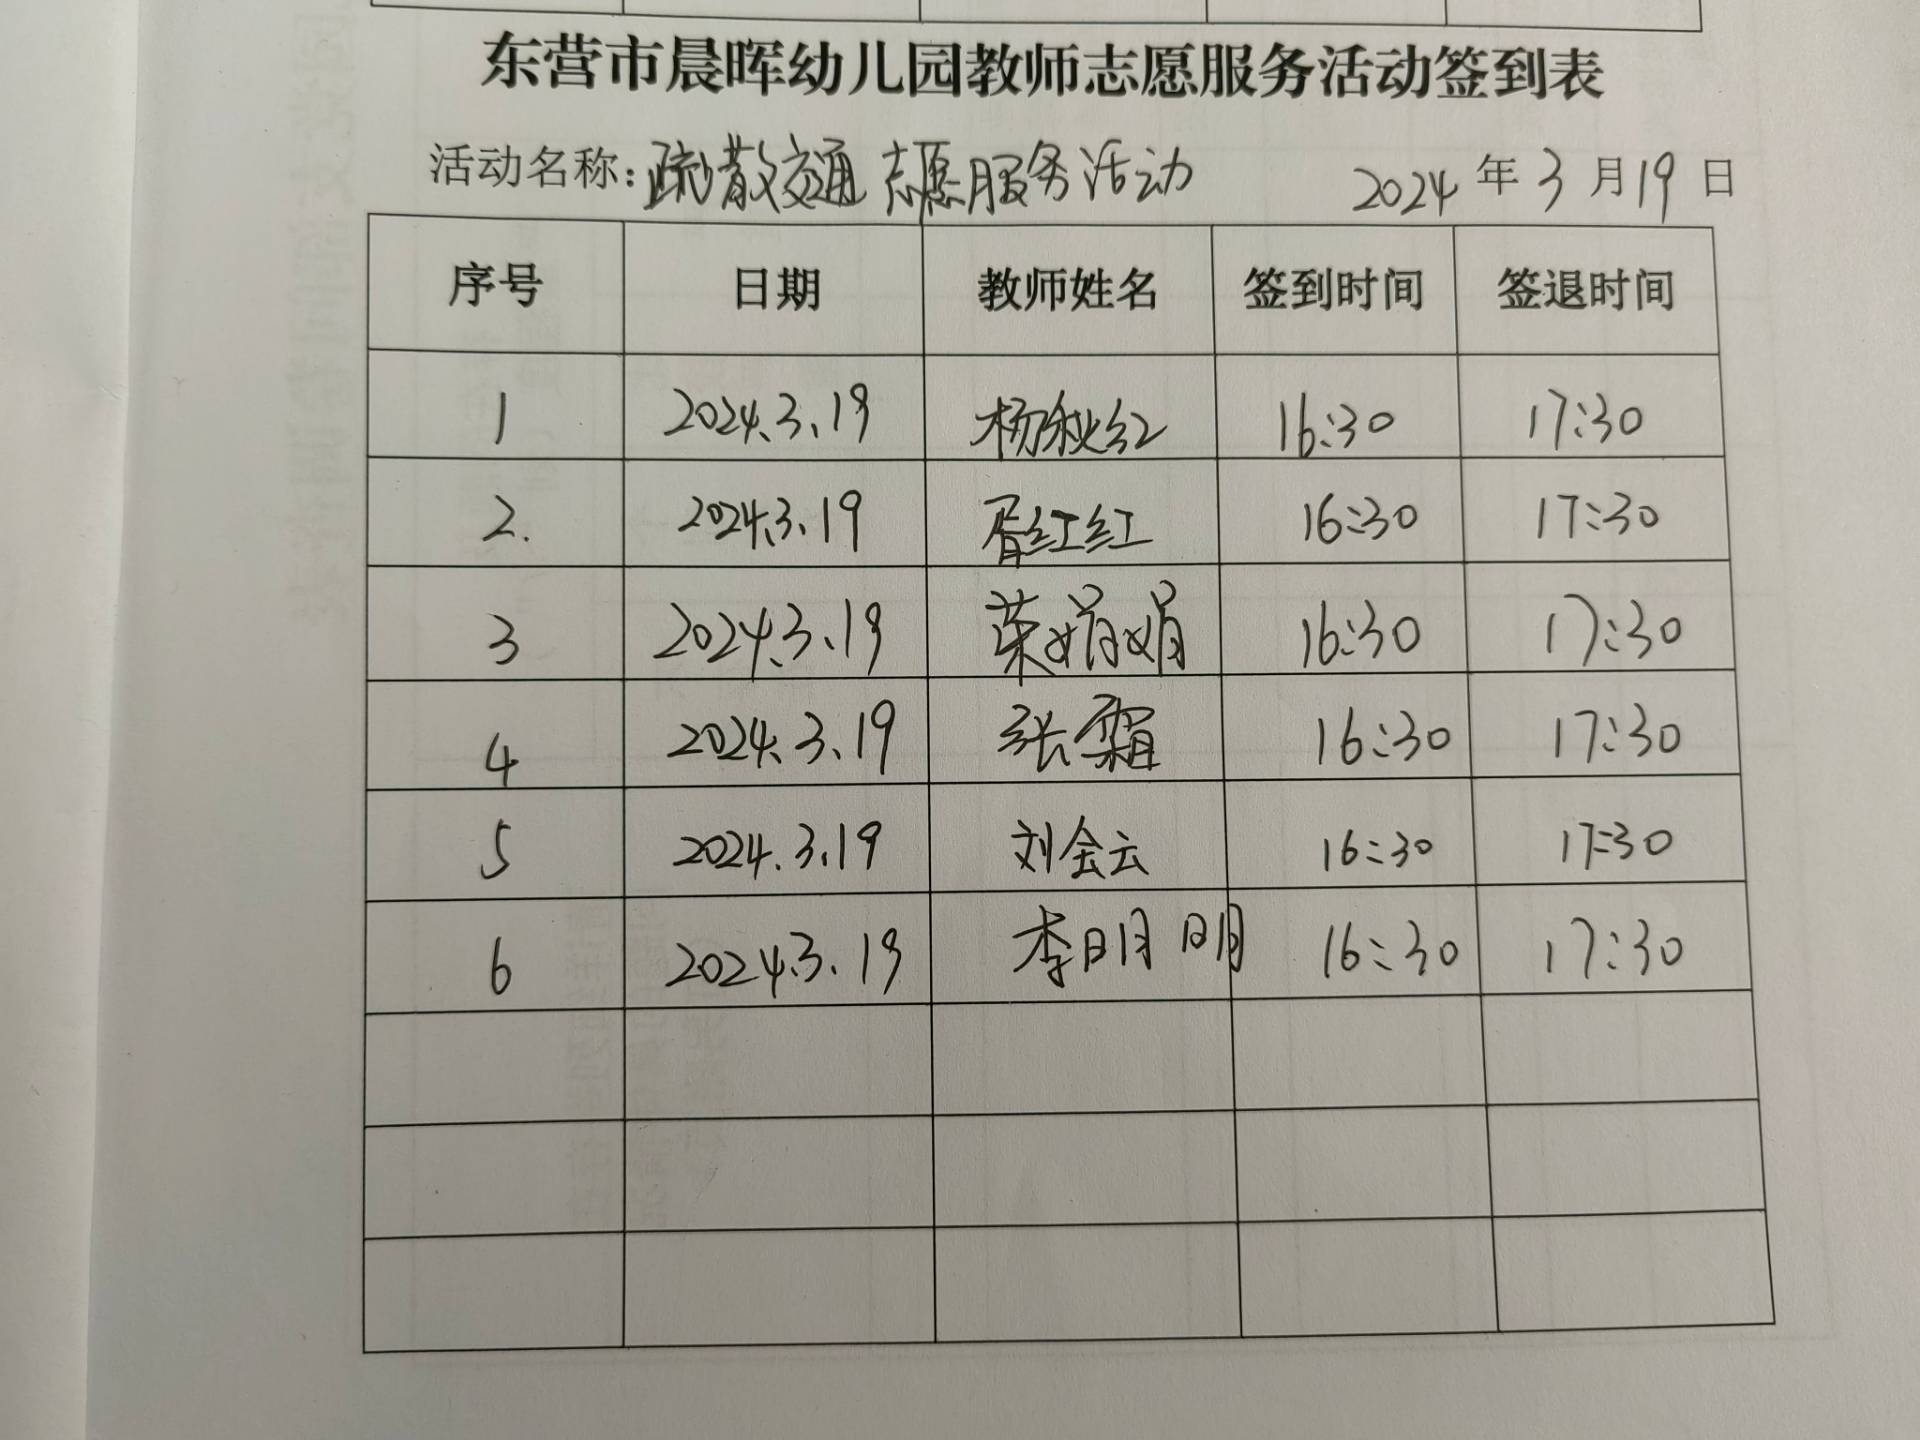 东营市晨晖幼儿园教师志愿服务活动签到表
活动名称:疏散交通志愿服务活动 2024年3月19日
序号 日期 教师姓名 签到时间 签退时间
1 2024.3.19 杨秋红 16:30 17:30
2. 2024.3.19 胥红红 16:30 17:30
3 2024.3.19 荣娟娟 16:30 17:30
4 2024.3.19 张霜 16:30 17:30
5 2024.3.19 刘会云 16:30 17:30
6 2024.3.19 李明明 16:30 17:30